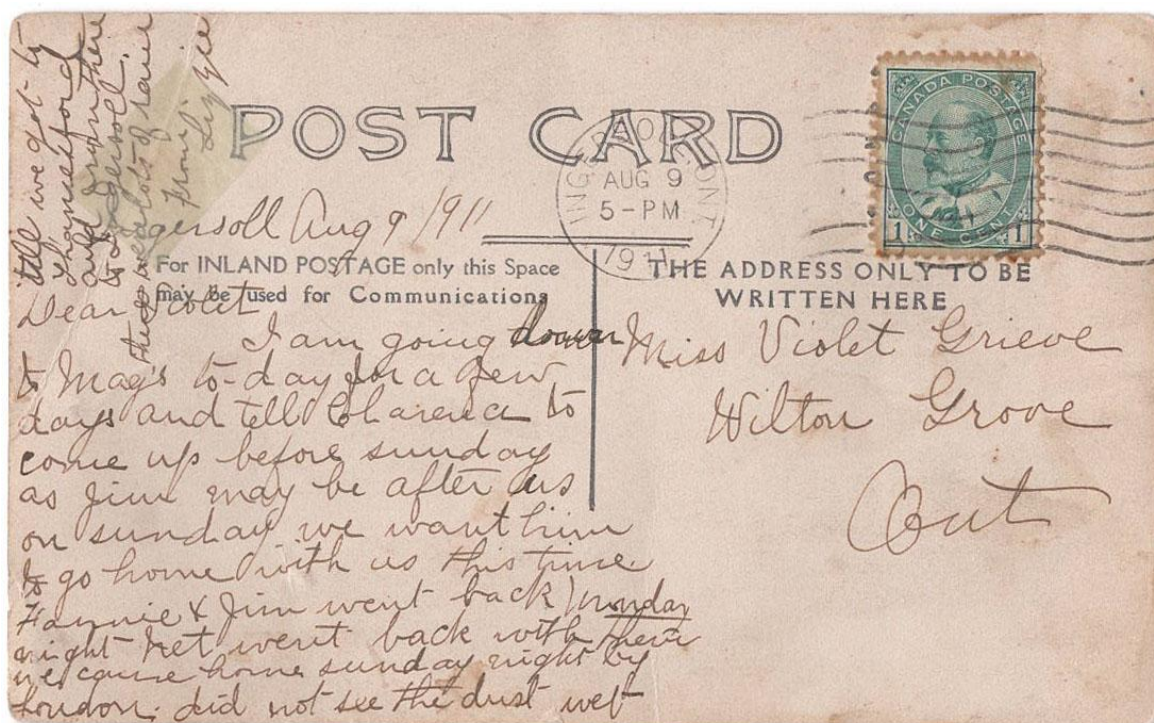 POST CARD
INGERSOLL ONT
AUG 9
5-PM
1911
CANADA POSTAGE
ONE CENT
1 1
Ingersoll Aug 9 1911
For INLAND POSTAGE only this Space
may be used for Communications
THE ADDRESS ONLY TO BE
WRITTEN HERE
Miss Violet Grieve
Wilton Grove
Ont
Dear Violet
I am going down
to Mag's to-day for a few
days and tell Clarence to
come up before sunday
as Jim may be after us
on sunday we want him
to go home with us this time
Fannie & Jim went back monday
night Net went back with them
we came home sunday night by
London. did not see the dust wet
till we got to
Thamesford
and from there
to Ingersoll.
there was lots of rain
From
Lizzie